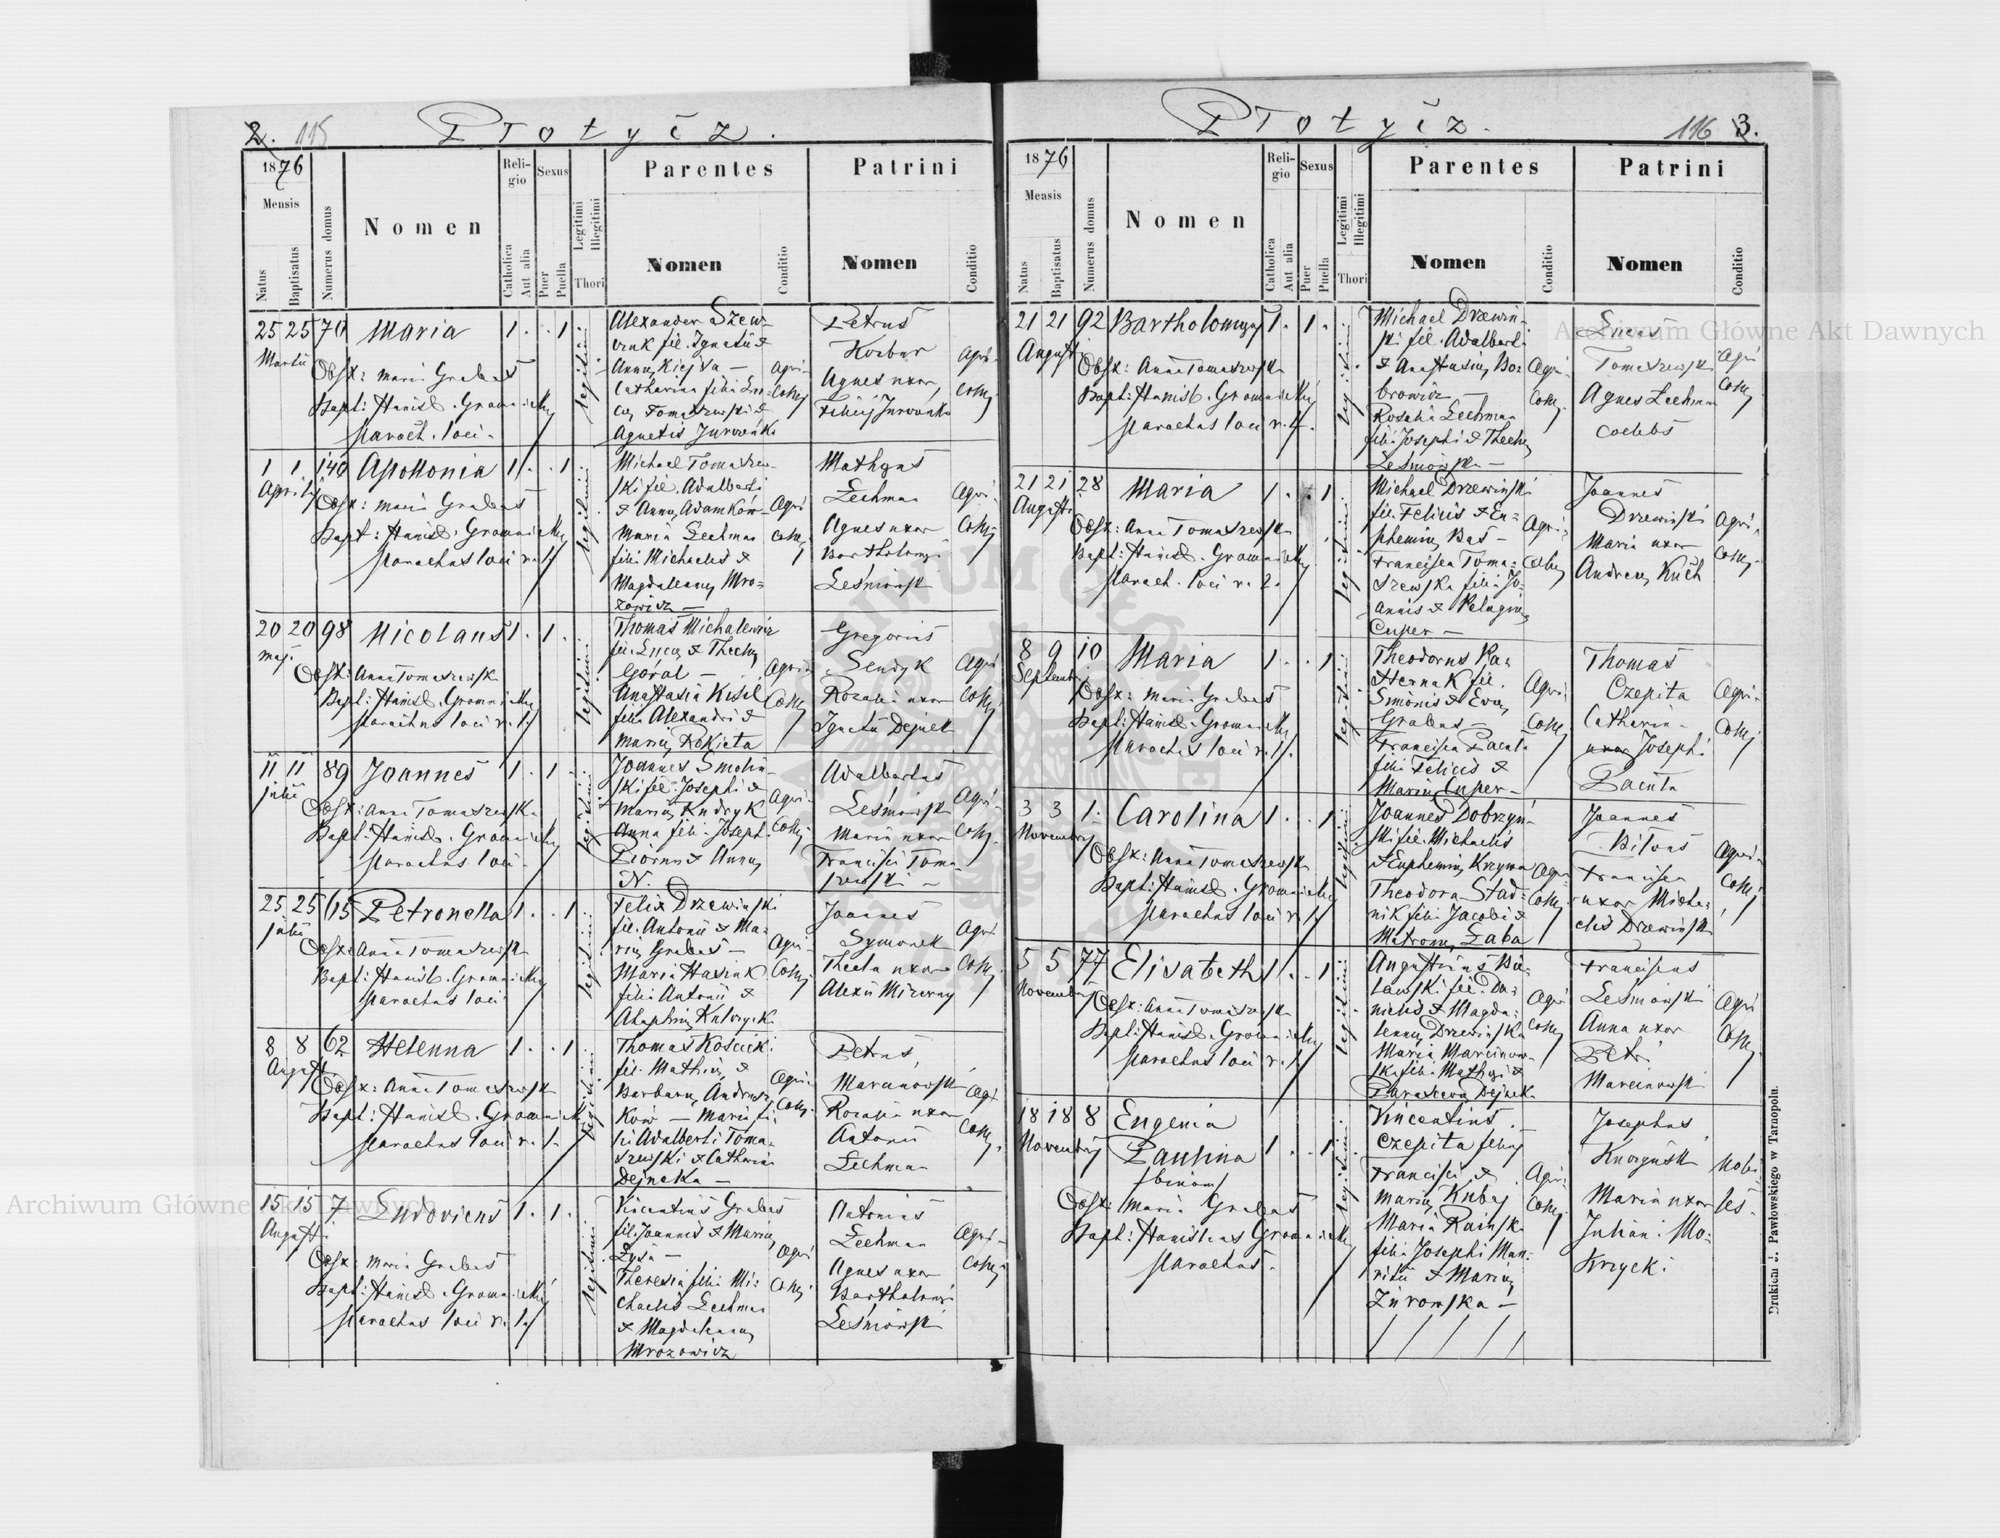 2. 115
Płotycz.
1876
Mensis
Natus
Baptisatus
Numerus domus
Nomen
Religio
Catholica
Aut alia
Sexus
Puer
Puella
Legitimi
Illegitimi
Thori
Parentes
Nomen
Conditio
Patrini
Nomen
Conditio
25 25 70 Maria 1. . 1
Martii
Obst: Maria Grabas
Bapt: Stanisl. Gromnicki
paroch. loci
legitimi
Alexander Szew-
czuk fil. Ignatii &
Anna Kiejda —
Catharina filia Lu-
cae Tomaszewski &
Agnetis Jurowska
Agri-
colae
Petrus
Korbur
Agnes uxor
Felicis Jurowski
Agri-
colae
1 1 140 Apollonia 1. . 1
Aprilis
Obst: Maria Grabas
Bapt: Stanisl. Gromnicki
parochus loci
legitimi
Michael Tomaszew-
ski fil. Adalberti
& Anna Adamków
Maria Lechman
filia Michaelis &
Magdalena Mro-
zowicz —
Agri
colae
Mathias
Lechman
Agnes uxor
Bartholomaei
Leśniowski
Agri-
colae
20 20 98 Nicolaus 1. 1.
Maji
Obst: Anna Tomaszewska
Bapt: Stanisl. Gromnicki
parochus loci
legitimi
Thomas Michalewicz
fil. Lucae & Thecla
Góral —
Anastasia Kisil
filia Alexandri &
Maria Rokieta
Agri-
colae
Gregorius
Sendyk
Rozalia uxor
Ignatii Dejnek
Agri
colae
11 11 89 Joannes 1. 1.
Julii
Obst: Anna Tomaszewska
Bapt: Stanisl. Gromnicki
parochus loci
legitimi
Joannes Smolin-
ski fil. Josephi &
Maria Kudryk
Anna filia Josephi
Piórun & Anna
N.
Agri-
colae
Adalbertus
Leśniowski
Maria uxor
Francisci Toma-
szewski —
Agri-
colae
25 25 65 Petronella 1. . 1
Julii
Obst: Anna Tomaszewska
Bapt: Stanisl. Gromnicki
parochus loci
legitimi
Felix Drzewinski
fil. Antonii & Ma-
ria Grabas —
Maria
filia Antonii &
Agri-
colae
Joannes
Symonek
Thecla uxor
Alexii Mizerny
Agri
colae
8 8 62 Helenna 1. . 1
Augusti
Obst: Anna Tomaszewska
Bapt: Stanisl. Gromnicki
parochus loci
legitimi
Thomas Kościcki
fil. Mathiae &
Barbara Andrusz-
ków — Maria fi-
lia Adalberti Toma-
szewski & Catharina
Dejneka —
Agri-
colae
Petrus
Marcinowski
Rozalia uxor
Antonii
Lechman
Agri
colae
15 15 7. Ludovicus 1. 1.
Augusti
Obst: Maria Grabas
Bapt: Stanisl. Gromnicki
parochus loci
legitimi
Vincentius Grabas
fil. Joannis & Maria
Łysa —
Theresia filia Mi-
chaelis Lechman
& Magdalena
Mrozowicz
Agri
colae
Antonius
Lechman
Agnes uxor
Bartholomaei
Leśniowski
Agri-
colae
Płotycz.
116 3.
1876
Measis
Natus
Baptisatus
Numerus domus
Nomen
Religio
Catholica
Aut alia
Sexus
Puer
Puella
Legitimi
Illegitimi
Thori
Parentes
Nomen
Conditio
Patrini
Nomen
Conditio
21 21 92 Bartholomaeus 1. 1.
Augusti
Obst: Anna Tomaszewska
Bapt: Stanisl. Gromnicki
parochus loci
legitimi
Michael Drzewin-
ski fil. Adalberti
& Anastasia Bo-
browicz —
Rosalia Lechman
filia Josephi & Thecla
Leśniowska —
Agri-
colae
Lucas
Tomaszewski
Agnes Lechman
coelebs
Agri
colae
21 21 28 Maria 1. . 1
Augusti
Obst: Anna Tomaszewska
Bapt: Stanisl. Gromnicki
paroch. loci
legitimi
Michael Drzewinski
fil. Felicis & Eu-
phemia Baś —
Francisca Toma-
szewska filia Jo-
annis & Pelagia
Cuper —
Agri-
colae
Joannes
Drzewinski
Maria uxor
Andreae Kuch
Agri-
colae
8 9 10 Maria 1. . 1
Septembris
Obst: Maria Grabas
Bapt: Stanisl. Gromnicki
parochus loci
legitimi
Theodorus Pa-
sternak fil.
Simonis & Eva
Grabas —
Francisca Pacuta
filia Felicis &
Maria Cuper —
Agri-
colae
Thomas
Czepita
Catharina
uxor Josephi
Pacuta
Agri-
colae
3 3 1. Carolina 1. . 1
Novembris
Obst: Anna Tomaszewska
Bapt: Stanisl. Gromnicki
parochus loci
legitimi
Joannes Dobrzyń-
ski fil. Michaelis
& Euphemia Krzywa
Theodora Stad-
nik filia Jacobi &
Matrona Łaba
Agri-
colae
Joannes
Bilous
Francisca
uxor Micha-
elis Drzewinski
Agri-
colae
5 5 77 Elisabeth 1. . 1
Novembris
Obst: Anna Tomaszewska
Bapt: Stanisl. Gromnicki
parochus loci
legitimi
Augustinus Bie-
lawski fil. Da-
nielis & Magda-
lenna Drzewinska
Maria Marcinow-
ska filia Mathiae &
Parascevia Dejnek
Agri
colae
Franciscus
Leśniowski
Anna uxor
Petri
Marcinowski
Agri
colae
18 18 8 Eugenia
Novembris
Paulina 1. . 1
(binom)
Obst: Maria Grabas
Bapt: Stanislaus Gromnicki
parochus.
legitimi
Vincentius
Czepita filius
Francisci &
Maria Kubej
Maria Rainska
filia Josephi Mau-
ritii & Maria
Żurowska —
Agri
colae
Josephus
Maria uxor
Juliani Mo-
krzycki
Nobi-
les.
Drukiem J. Pawłowskiego w Tarnopolu.
Archiwum Główne Akt Dawnych
Archiwum Główne Akt Dawnych